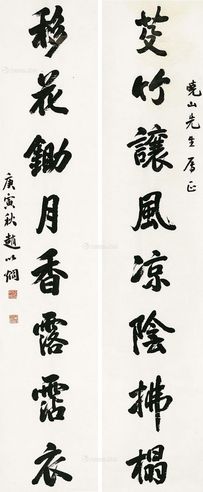 芟竹讓風凉陰拂榻
曉山先生屬正
移花鋤月香露霑衣
庚寅秋趙以烱